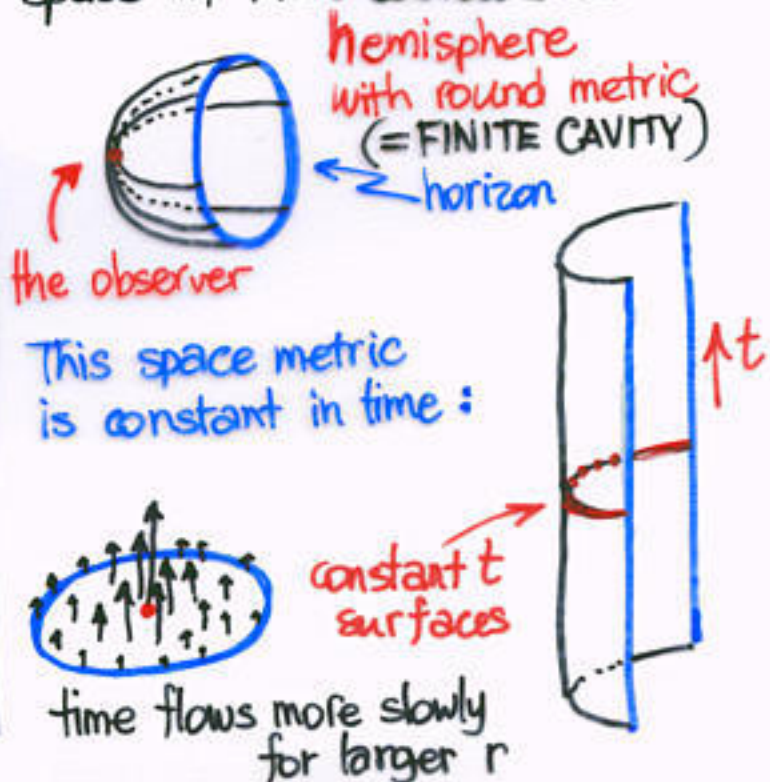 hemisphere
with round metric
(= FINITE CAVITY)
horizon
the observer
This space metric
is constant in time :
t
constant t
surfaces
time flows more slowly
for larger r